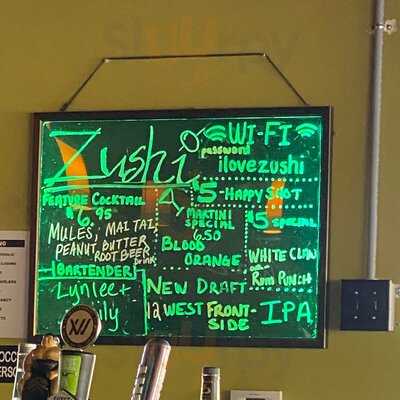 Zushi
WI-FI
password
ilovezushi
FEATURE COCKTAIL
$6.95
MULES, MAI TAI,
PEANUT BUTTER
ROOT BEER
Drink
BARTENDER
Lynlee +
$5 - HAPPY SHOT
MARTINI
SPECIAL
6.50
BLOOD
ORANGE
$5 SPECIAL
WHITE CLAW
or
RUM PUNCH
NEW DRAFT
12 WEST FRONT-
SIDE
IPA
XII